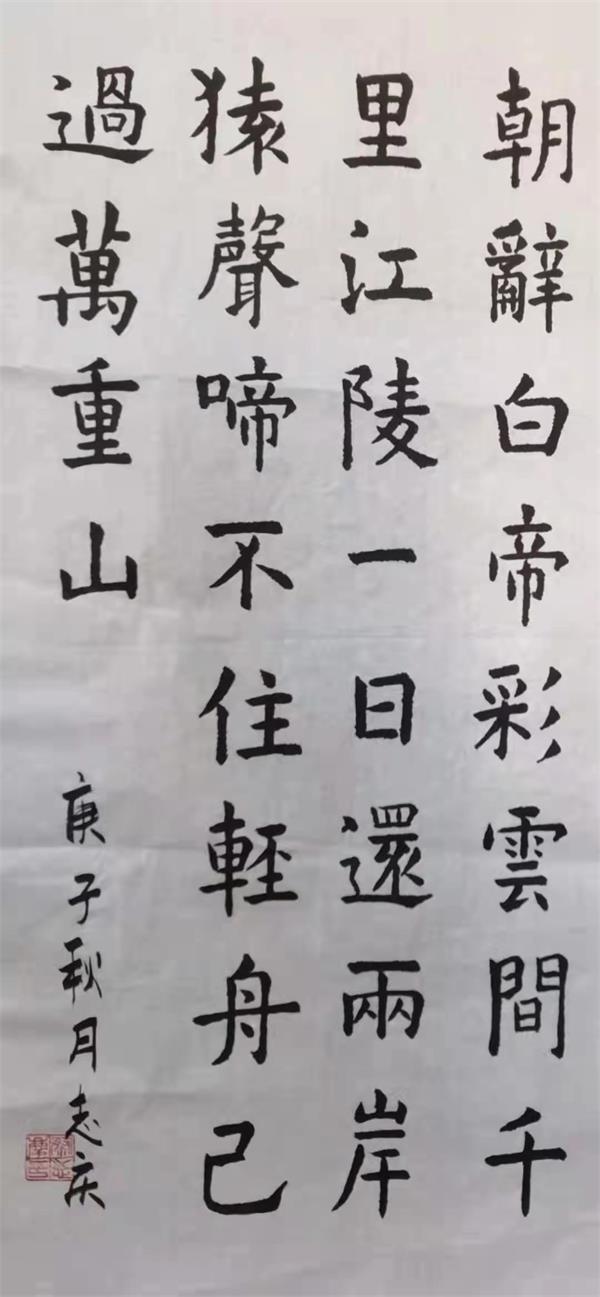 朝辭白帝彩雲間千
里江陵一日還兩岸
猿聲啼不住輕舟已
過萬重山
庚子秋月志庆